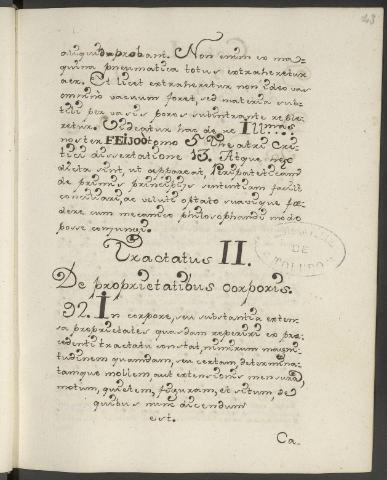 23
aliquid probant. Non enim ex ma-
quina pneumatica totus extraheretur
aer. Et licet extraheretur non ideo vas
omnino vacuum foret, sed materia sub-
tili per vasis poros subintrante reple-
retur. Videatur hac de re Ill.mus
noster FEIJOO tomo 5 Theatri Cri-
tici dissertatione 13. Atque hæc
dicta sint, ut aptareat, Peripateticam
de primis principijs sententiam facilè
conciliari, ac veluti optato suavique fæ-
dere cum mecanico philosophandi modo
posse conjungi.
Tractatus II.
De proprietatibus corporis.
92. In corpore, seu substantia exten-
sa proprietates quasdam reperiri ex præ-
cedenti tractatu constat, nimirum magni-
tudinem quamdam, seu certam, determina-
tamque mollem, aut extensionis mensuram,
motum, quietem, figuram, et situm, de
quibus nunc dicendum
est.
Ca-
DE
TOLEDO